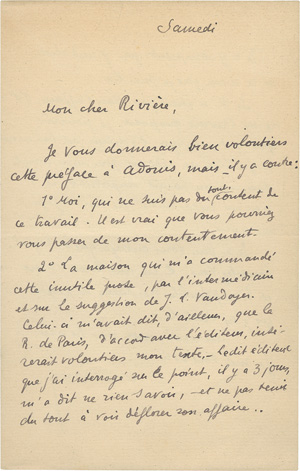 Samedi
Mon cher Rivière,
Je vous donnerais bien volontiers
cette préface à Adonis, mais il y a contre :
1° Moi, qui ne suis pas du tout content de
ce travail. Il est vrai que vous pourriez
vous passer de mon contentement.
2° La maison qui m'a commandé
cette inutile prose, par l'intermédiaire
et sur la suggestion de J. L. Vaudoyer.
Celui-ci m'avait dit, d'ailleurs, que la
R. de Paris, d'accord avec l'éditeur, insé-
rerait volontiers mon texte, – Ledit éditeur
que j'ai interrogé sur le point, il y a 3 jours,
m'a dit ne rien savoir, – et ne pas tenir
du tout à voir déflorer son affaire ..